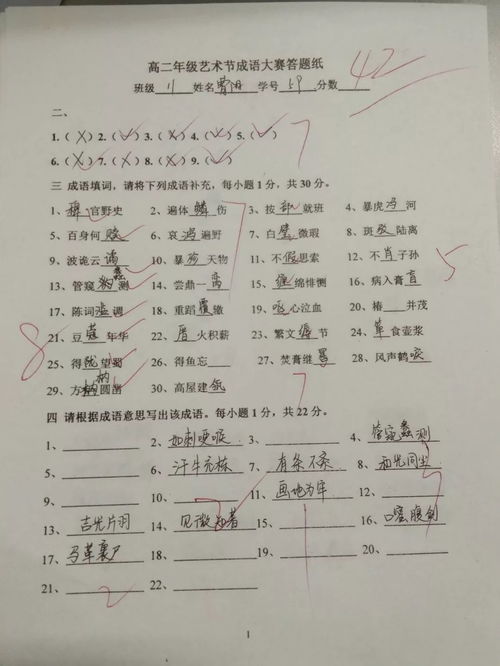 高二年级艺术节成语大赛答题纸
班级 11 姓名 曹阳 学号 59 分数 42
二、
1.(×) 2.(√) 3.(×) 4.(√) 5.(√) 7
6.(√) 7.(×) 8.(×) 9.(√)
三 成语填词,请将下列成语补充,每小题1分,共30分。
1、稗官野史 2、遍体鳞伤 3、按部就班 4、暴虎冯河
5、百身何赎 6、哀鸿遍野 7、白璧微瑕 8、斑驳陆离
9、波诡云谲 10、暴殄天物 11、不假思索 12、不肖子孙
13、管窥蠡测 14、尝鼎一脔 15、缠绵悱恻 16、病入膏肓 5
17、陈词滥调 18、重蹈覆辙 19、呕心沥血 20、椿 并茂
21、豆蔻年华 22、厝火积薪 23、繁文缛节 24、箪食壶浆
8
25、得陇望蜀 26、得鱼忘 27、焚膏继晷 28、风声鹤唳
29、方枘圆凿 30、高屋建瓴 7
四 请根据成语意思写出该成语。每小题1分,共22分。
1、 2、如刺哽喉 3、 4、管窥蠡测
5、 6、汗牛充栋 7、有条不紊 8、和光同尘
9、 10、 11、画地为牢 12、
13、吉光片羽 14、见微知著 15、 16、口蜜腹剑
17、马革裹尸 18、 19、 20、
21、 22、
2
1